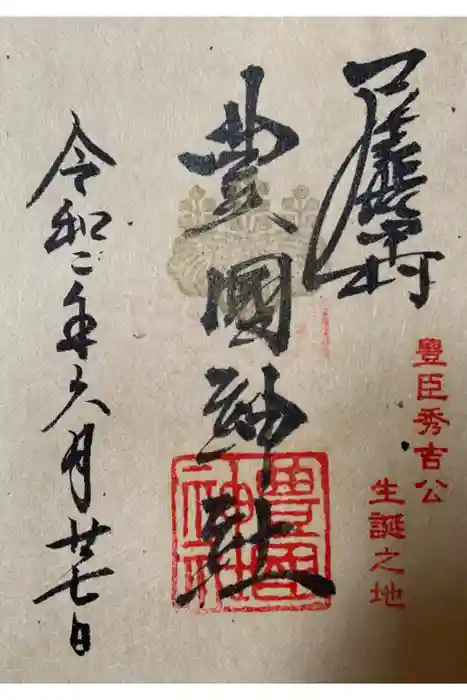 豊臣秀吉公
生誕之地
豊國神社
豊國神社
令和二年六月廿七日